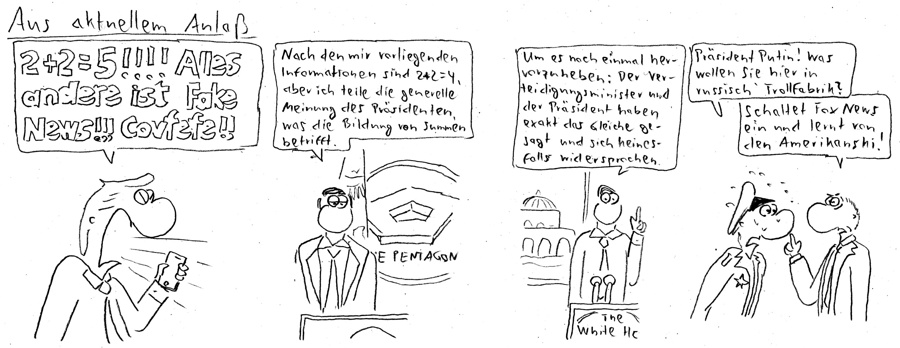 Aus aktuellem Anlaß
2+2=5!!!! Alles
andere ist Fake
News!!! Covfefe!!
Nach den mir vorliegenden
Informationen sind 2+2=4,
aber ich teile die generelle
Meinung des Präsidenten,
was die Bildung von Summen
betrifft.
E PENTAGON
Um es noch einmal her-
vorzuheben: Der Ver-
teidigungsminister und
der Präsident haben
exakt das Gleiche ge-
sagt und sich keines-
falls widersprochen.
The
White Ho
Präsident Putin! Was
wollen Sie hier in
russisch' Trollfabrik?
Schaltet Fox News
ein und lernt von
den Amerikanski!